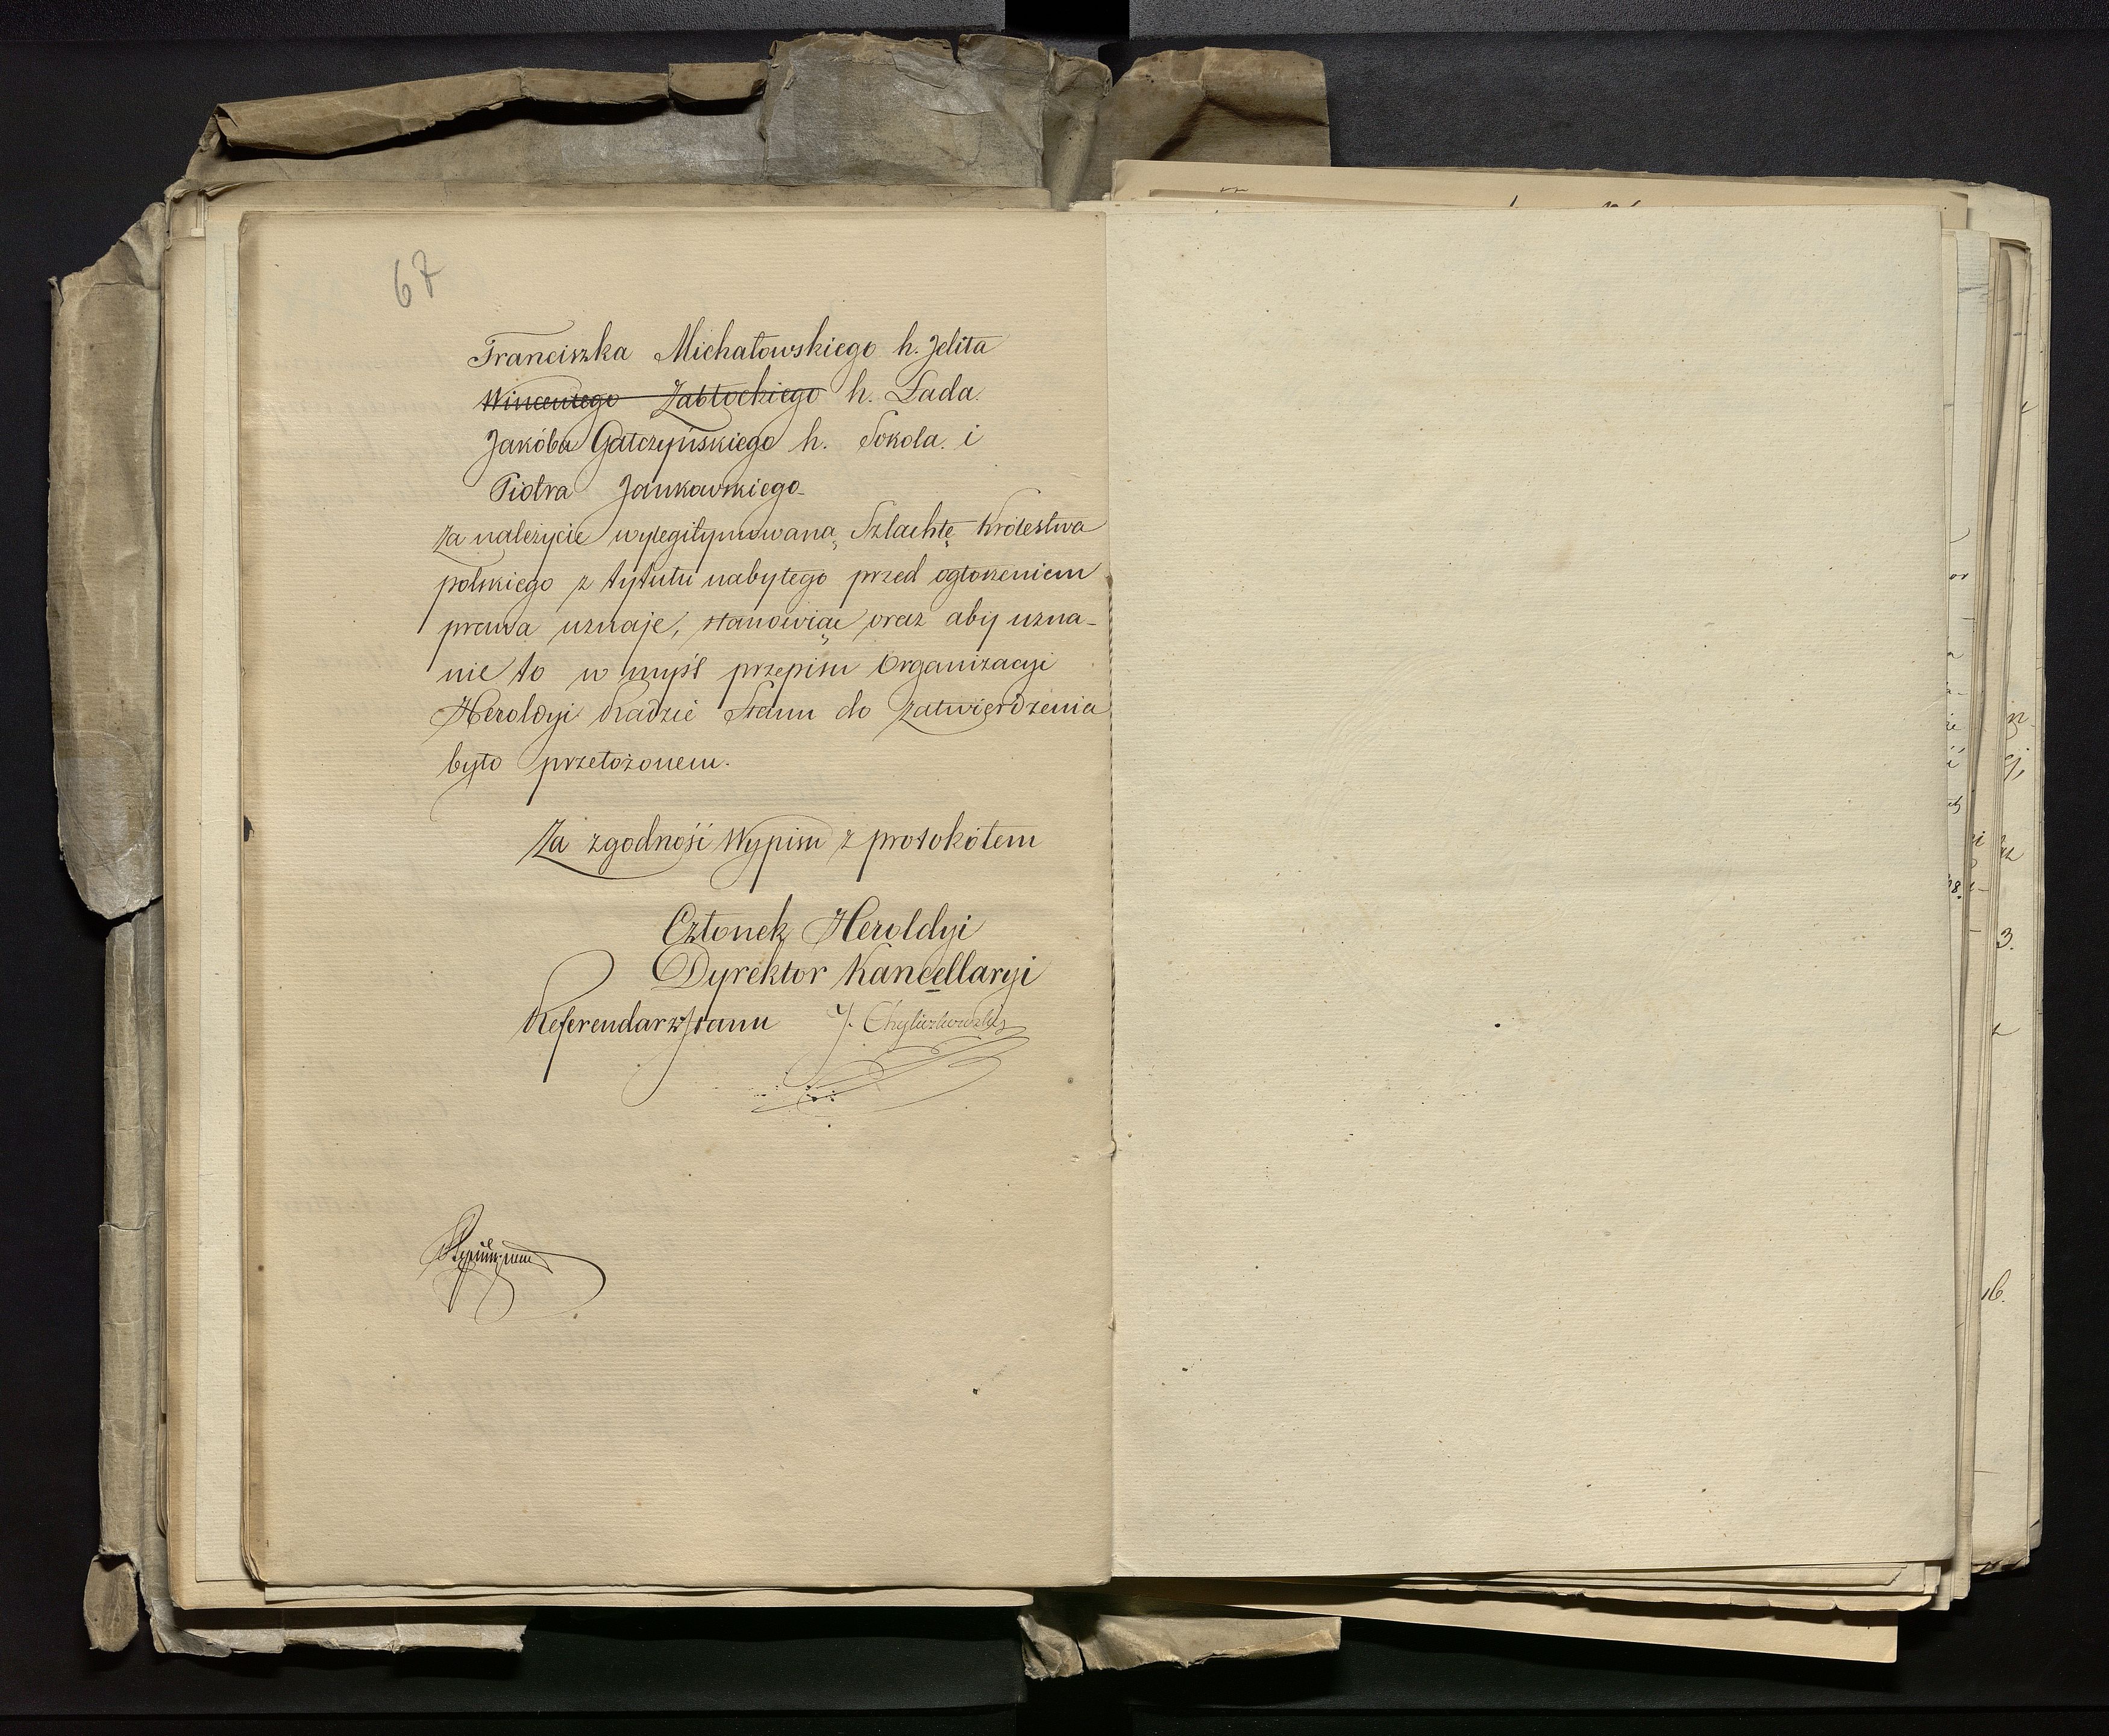 67
Franciszka Michałowskiego h. Jelita
Wincentego Zabłockiego h. Łada.
Jakóba Gałczyńskiego h. Sokola. i
Piotra Jankowskiego
Za należycie wylegitymowaną Szlachtę Królestwa
polskiego z tytułu nabytego przed ogłoszeniem
prawa uznaje, stanowiąc oraz aby uzna-
nie to w myśl przepisu Organizacyi
Heroldyi Radzie Stanu do zatwierdzenia
było przełożonem.
Za zgodność Wypisu z protokółem
Członek Heroldyi
Dyrektor Kancellaryi
Referendarz Stanu J. Chyliczkowski